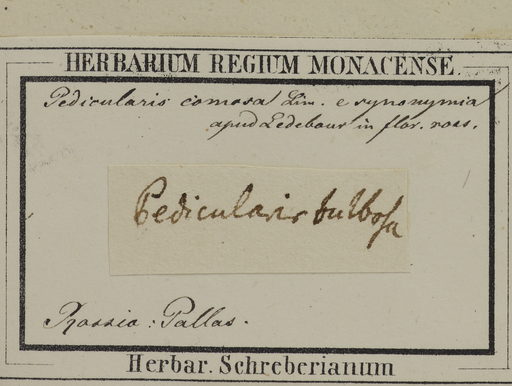 HERBARIUM REGIUM MONACENSE.
Pedicularis comosa Lin. e synonymia
apud Ledebour in flor. ross.
Pedicularis bulbosa
Rossia: Pallas.
Herbar. Schreberianum